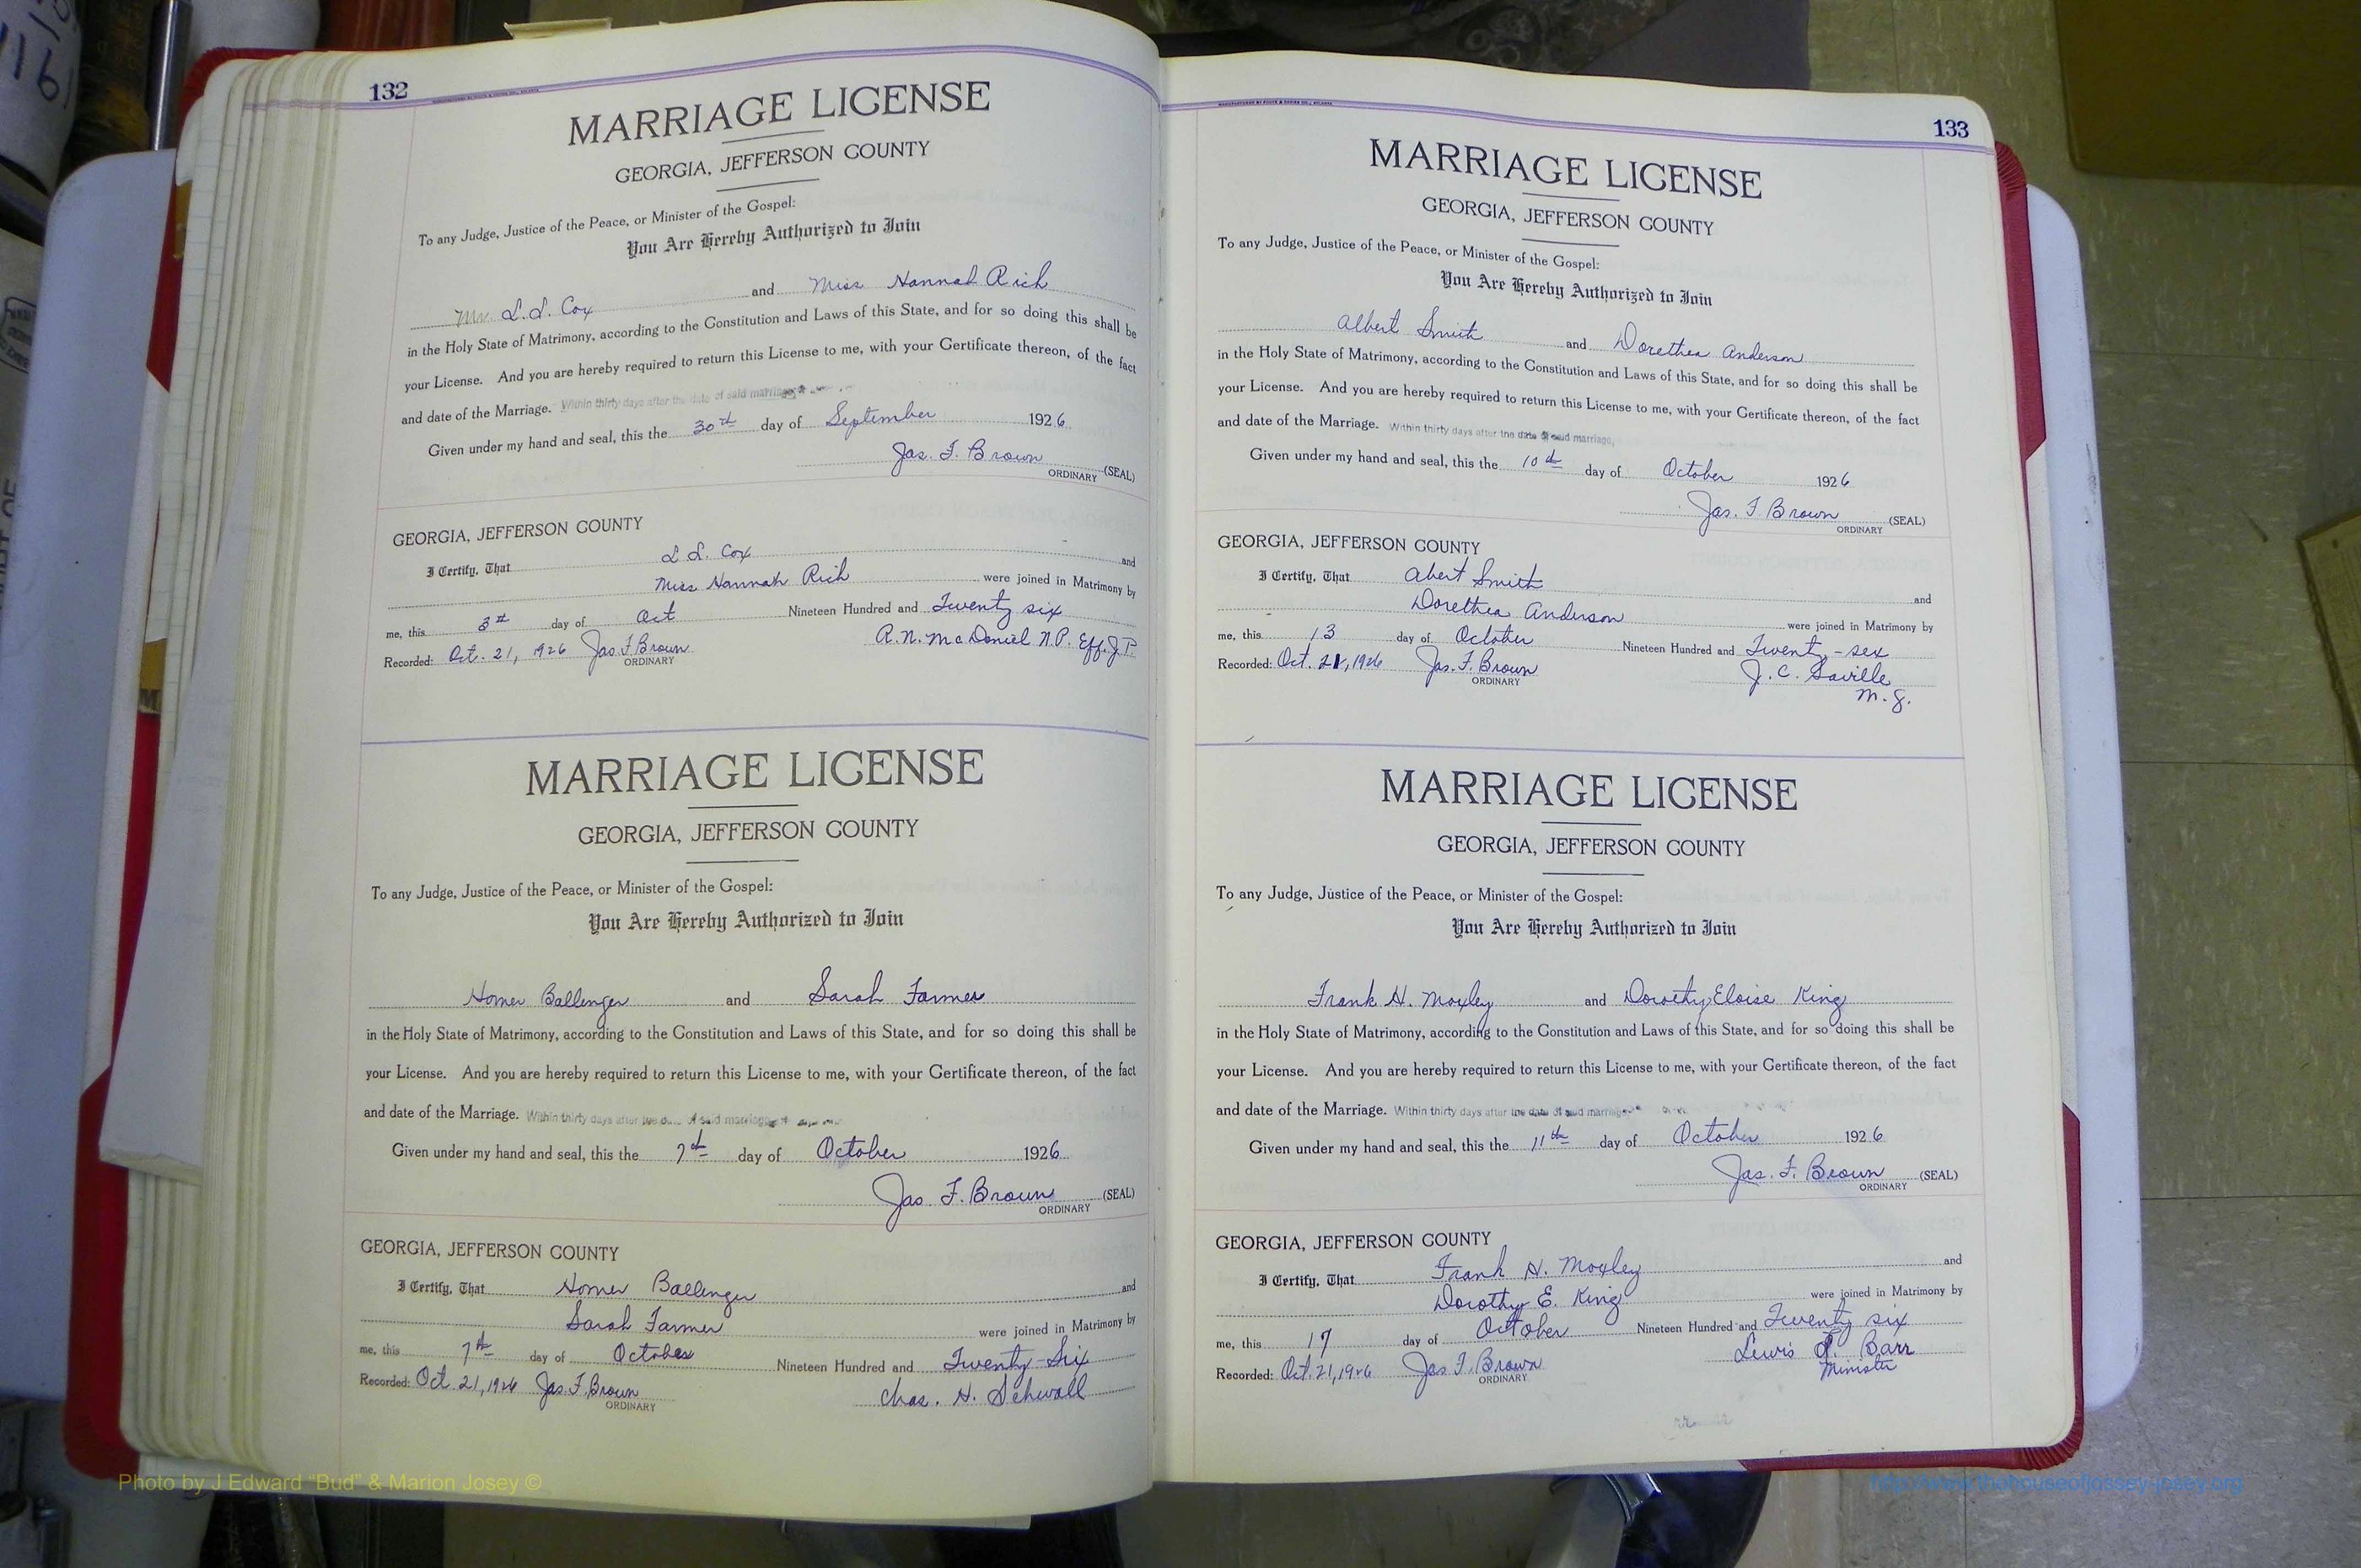 132
MARRIAGE LICENSE
GEORGIA, JEFFERSON COUNTY
To any Judge, Justice of the Peace, or Minister of the Gospel:
You Are Hereby Authorized to Join
Mr. L.L. Cox and Miss Hannah Rich
in the Holy State of Matrimony, according to the Constitution and Laws of this State, and for so doing this shall be
your License. And you are hereby required to return this License to me, with your Certificate thereon, of the fact
and date of the Marriage. Within thirty days after the date of said marriage
Given under my hand and seal, this the 30th day of September 1926
Jas. F. Brown (SEAL)
ORDINARY
GEORGIA, JEFFERSON COUNTY
I Certify, That L L. Cox and
Miss Hannah Rich were joined in Matrimony by
me, this 3rd day of Oct Nineteen Hundred and Twenty six
Recorded: Oct. 21, 1926 Jas. F. Brown R.N. McDaniel N.P. Eff. J.P.
ORDINARY
MARRIAGE LICENSE
GEORGIA, JEFFERSON COUNTY
To any Judge, Justice of the Peace, or Minister of the Gospel:
You Are Hereby Authorized to Join
Homer Ballenger and Sarah Farmer
in the Holy State of Matrimony, according to the Constitution and Laws of this State, and for so doing this shall be
your License. And you are hereby required to return this License to me, with your Certificate thereon, of the fact
and date of the Marriage. Within thirty days after the date of said marriage
Given under my hand and seal, this the 7th day of October 1926
Jas. F. Brown (SEAL)
ORDINARY
GEORGIA, JEFFERSON COUNTY
I Certify, That Homer Ballenger and
Sarah Farmer were joined in Matrimony by
me, this 7th day of October Nineteen Hundred and Twenty-Six
Recorded: Oct. 21, 1926 Jas. F. Brown Chas. H. Schwall
ORDINARY
133
MARRIAGE LICENSE
GEORGIA, JEFFERSON COUNTY
To any Judge, Justice of the Peace, or Minister of the Gospel:
You Are Hereby Authorized to Join
Albert Smith and Dorethea Anderson
in the Holy State of Matrimony, according to the Constitution and Laws of this State, and for so doing this shall be
your License. And you are hereby required to return this License to me, with your Certificate thereon, of the fact
and date of the Marriage. Within thirty days after the date of said marriage,
Given under my hand and seal, this the 10th day of October 1926
Jas. F. Brown (SEAL)
ORDINARY
GEORGIA, JEFFERSON COUNTY
I Certify, That Abert Smith and
Dorethea Anderson were joined in Matrimony by
me, this 13 day of October Nineteen Hundred and Twenty-sex
Recorded: Oct. 21, 1926 Jas. F. Brown J. C. Saville
ORDINARY M. G.
MARRIAGE LICENSE
GEORGIA, JEFFERSON COUNTY
To any Judge, Justice of the Peace, or Minister of the Gospel:
You Are Hereby Authorized to Join
Frank H. Moxley and Dorothy Eloise King
in the Holy State of Matrimony, according to the Constitution and Laws of this State, and for so doing this shall be
your License. And you are hereby required to return this License to me, with your Certificate thereon, of the fact
and date of the Marriage. Within thirty days after the date of said marriage
Given under my hand and seal, this the 11th day of October 1926
Jas. F. Brown (SEAL)
ORDINARY
GEORGIA, JEFFERSON COUNTY
I Certify, That Frank H. Moxley and
Dorothy E. King were joined in Matrimony by
me, this 17 day of October Nineteen Hundred and Twenty six
Recorded: Oct. 21, 1926 Jas. F. Brown Lewis Barr
ORDINARY Minister
Photo by J Edward "Bud" & Marion Josey ©
http://www.thehouseofjossey-josey.org